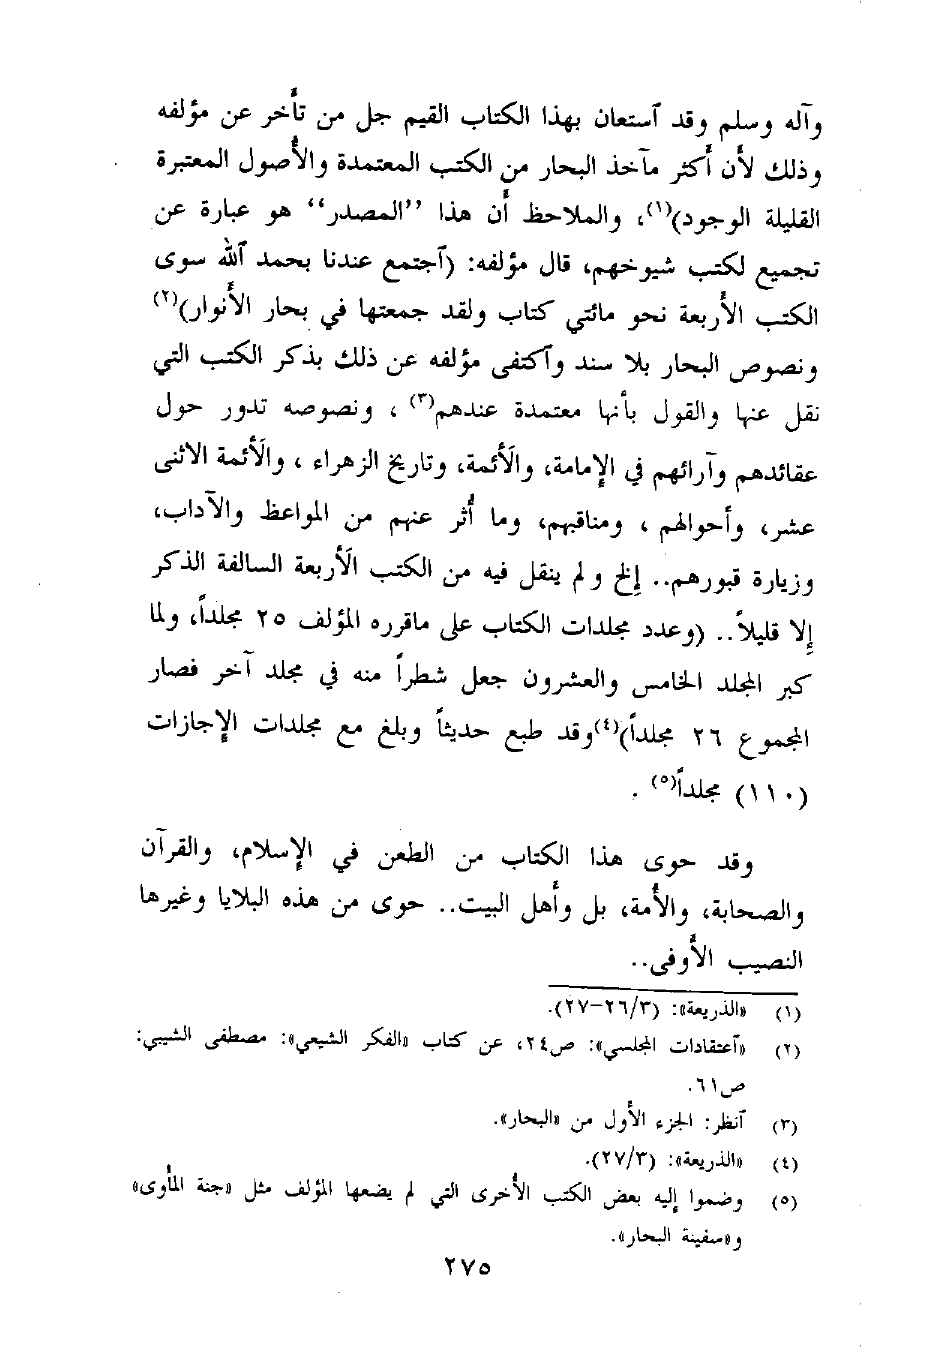 وآله وسلم وقد آستعان بهذا الكتاب القيم جل من تأَخر عن مؤلفه
وذلك لأَن أَكثر مآخذ البحار من الكتب المعتمدة والأُصول المعتبرة
القليلة الوجود)(١)، والملاحظ أَن هذا ‘‘المصدر‘‘ هو عبارة عن
تجميع لكتب شيوخهم، قال مؤلفه: (آجتمع عندنا بحمد آلله سوى
الكتب الأَربعة نحو مائتي كتاب ولقد جمعتها في بحار الأَنوار)(٢)
ونصوص البحار بلا سند وآكتفى مؤلفه عن ذلك بذكر الكتب التي
نقل عنها والقول بأَنها معتمدة عندهم(٣) ، ونصوصه تدور حول
عقائدهم وآرائهم في الإمامة، والأَئمة، وتاريخ الزهراء ، والأَئمة الاثنى
عشر، وأَحوالهم ، ومناقبهم، وما أُثر عنهم من المواعظ والآداب،
وزيارة قبورهم.. إلخ ولم ينقل فيه من الكتب الأَربعة السالفة الذكر
إلا قليلاً.. (وعدد مجلدات الكتاب على ماقرره المؤلف ٢٥ مجلداً، ولما
كبر المجلد الخامس والعشرون جعل شطراً منه في مجلد آخر فصار
المجموع ٢٦ مجلداً)(٤)وقد طبع حديثاً وبلغ مع مجلدات الإجازات
(١١٠) مجلداً(٥) .
وقد حوى هذا الكتاب من الطعن في الإسلام، والقرآن
والصحابة، والأُمة، بل وأَهل البيت.. حوى من هذه البلايا وغيرها
النصيب الأَوفى..
(١) «الذريعة»: (٢٦/٣–٢٧).
(٢) «آعتقادات المجلسي»: ص٢٤، عن كتاب «الفكر الشيعي»: مصطفى الشيبي:
ص٦١.
(٣) آنظر: الجزء الأَول من «البحار».
(٤) «الذريعة»: (٢٧/٣).
(٥) وضموا إليه بعض الكتب الأُخرى التي لم يضعها المؤلف مثل «جنة المأوى»
و«سفينة البحار».
٢٧٥